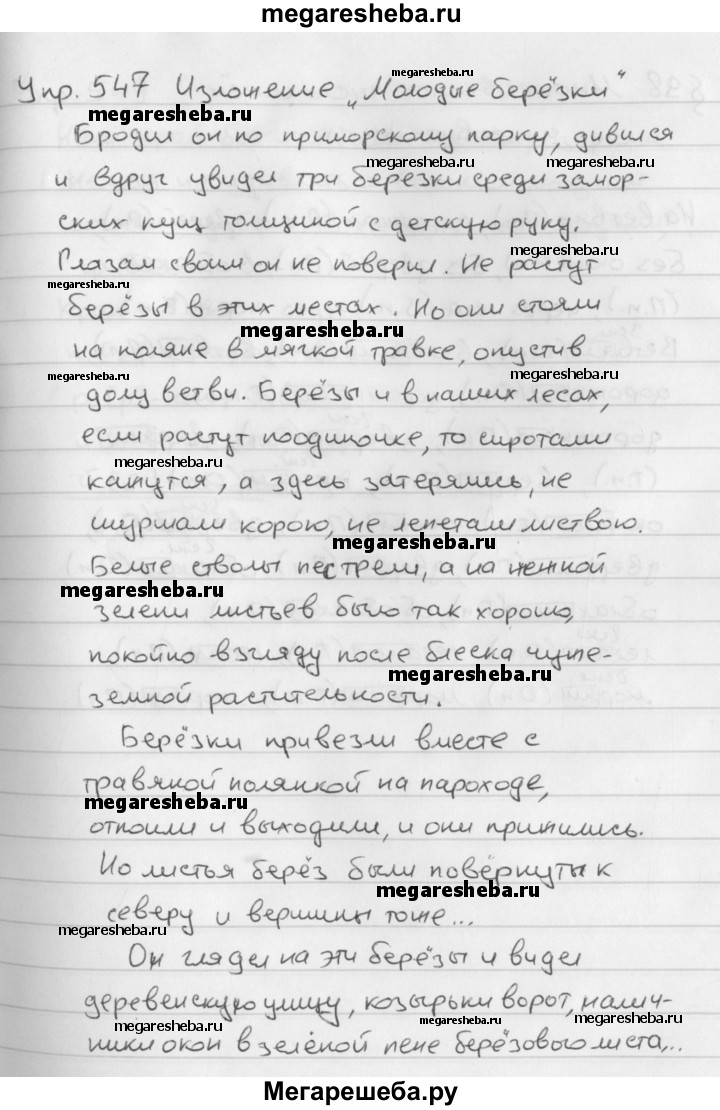 megaresheba.ru
Упр. 547 Изложение „Молодые берёзки"
megaresheba.ru
megaresheba.ru
Бродил он по приморскому парку, дивился
megaresheba.ru
megaresheba.ru
и вдруг увидел три березки среди замор-
ских кущ толщиной с детскую руку.
megaresheba.ru
Глазам своим он не поверил. Не растут
megaresheba.ru
берёзы в этих местах. Но они стояли
megaresheba.ru
на поляне в мягкой травке, опустив
megaresheba.ru
megaresheba.ru
долу ветви. Берёзы и в наших лесах,
если растут поодиночке, то сиротами
megaresheba.ru
кажутся, а здесь затерялись, не
шуршали корою, не лепетали листвою.
megaresheba.ru
Белые стволы пестрели, а на нежной
megaresheba.ru
зелени листьев было так хорошо,
покойно взгляду после блеска чуже-
megaresheba.ru
земной растительности.
Берёзки привезли вместе с
травяной полянкой на пароходе,
megaresheba.ru
megaresheba.ru
отпоили и выходили, и они прижились.
Но листья берёз были повёрнуты к
megaresheba.ru
северу и вершины тоже...
megaresheba.ru
Он глядел на эти берёзы и видел
деревенскую улицу, козырьки ворот, налич-
megaresheba.ru
megaresheba.ru
megaresheba.ru
ники окон в зелёной пене берёзового листа...
Мегарешеба.ру